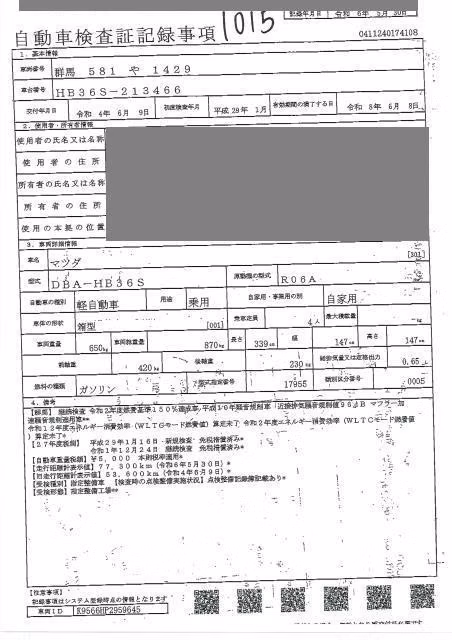 1015
記録年月日 令和 6年 5月 30日
自動車検査証記録事項
0411240174108
1. 基本情報
車両番号 群馬 581 や 1429
車台番号 HB36S-213466
交付年月日 令和 4年 6月 9日 初度検査年月 平成 29年 1月 有効期間の満了する日 令和 8年 6月 8日
2. 使用者・所有者情報
使用者の氏名又は名称
使用者の住所
所有者の氏名又は名称
所有者の住所
使用の本拠の位置
3. 車両詳細情報
車名 マツダ [301]
型式 DBA-HB36S 原動機の型式 R06A
自動車の種別 軽自動車 用途 乗用 自家用・事業用の別 自家用
車体の形状 箱型 [001] 乗車定員 4人 最大積載量 -kg
車両重量 650kg 車両総重量 870kg 長さ 339cm 幅 147cm 高さ 147cm
前軸重 420kg 後軸重 230kg 総排気量又は定格出力 0.65L
燃料の種類 ガソリン 型式指定番号 17955 類別区分番号 0005
4. 備考
[群馬] 継続検査 令和2年度燃費基準150%達成車 平成10年騒音規制車 近接排気騒音規制値96dB マフラー加
速騒音規制適用車*
令和12年度エネルギー消費効率(WLTCモード燃費値)算定未了 令和2年度エネルギー消費効率(WLTCモード燃費値
)算定未了*
[27年度税制] 平成29年1月16日-新規検査- 免税措置済み*
令和1年12月24日 継続検査 免税措置済み*
[自動車重量税額] ¥5,000 本則税率適用*
[走行距離計表示値] 77,300km(令和6年5月30日)*
[旧走行距離計表示値] 53,600km(令和4年6月9日)*
[受検種別] 指定整備車 [検査時の点検整備実施状況] 点検整備記録簿記載あり*
[受検形態] 指定整備工場*
[注意事項]
記録事項はシステム登録時点の情報となります
車両ID K9566HP2959645